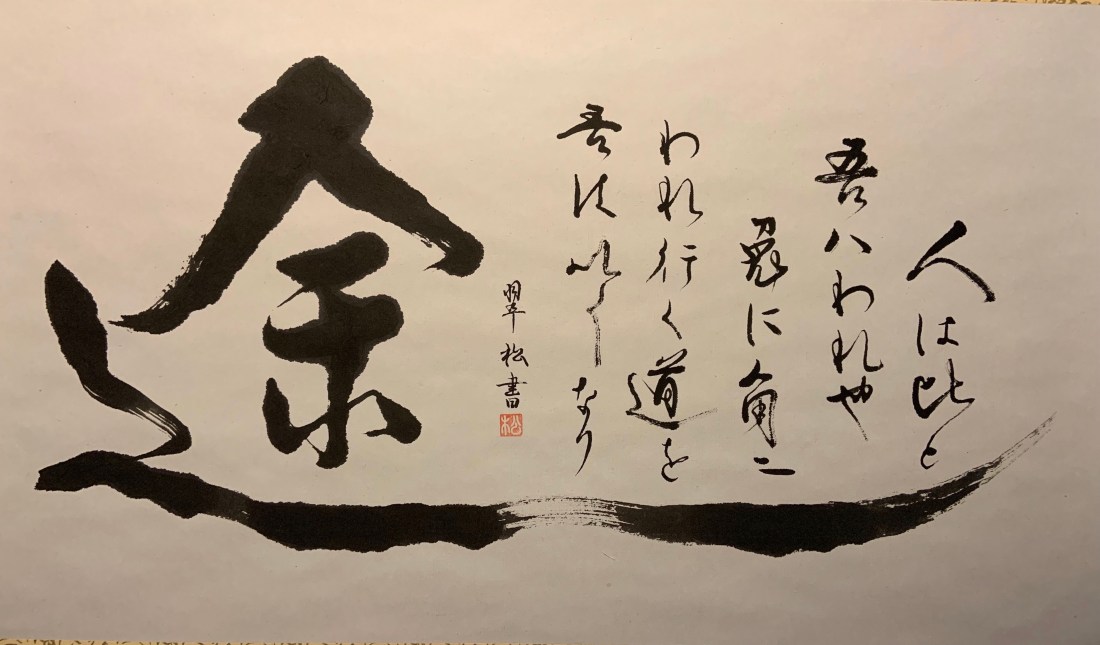 人は比と
吾ハわれ也
兎に角ニ
われ行く道を
吾は以くなり
翠松書
松
途